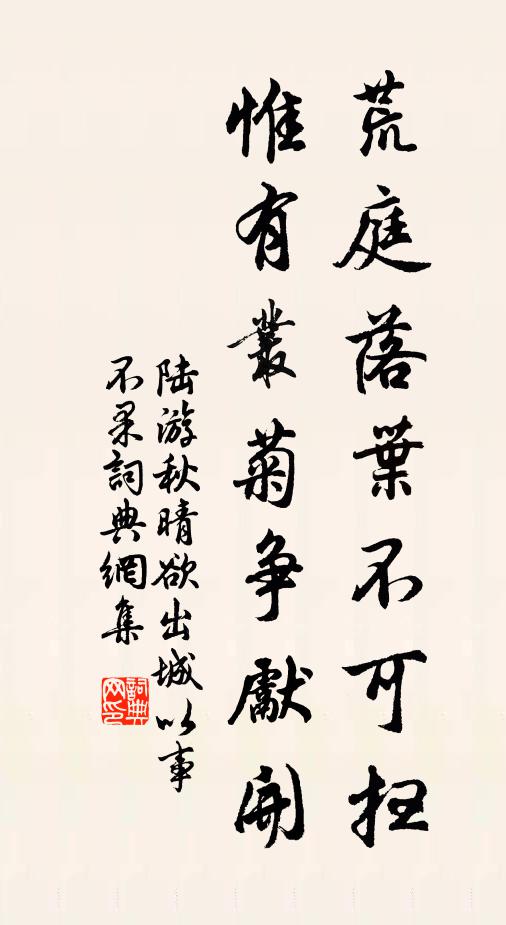 荒庭落葉不可扫
惟有叢菊争獻開
陆游秋晴欲出城以事
不果詞典網集
詞典
网印